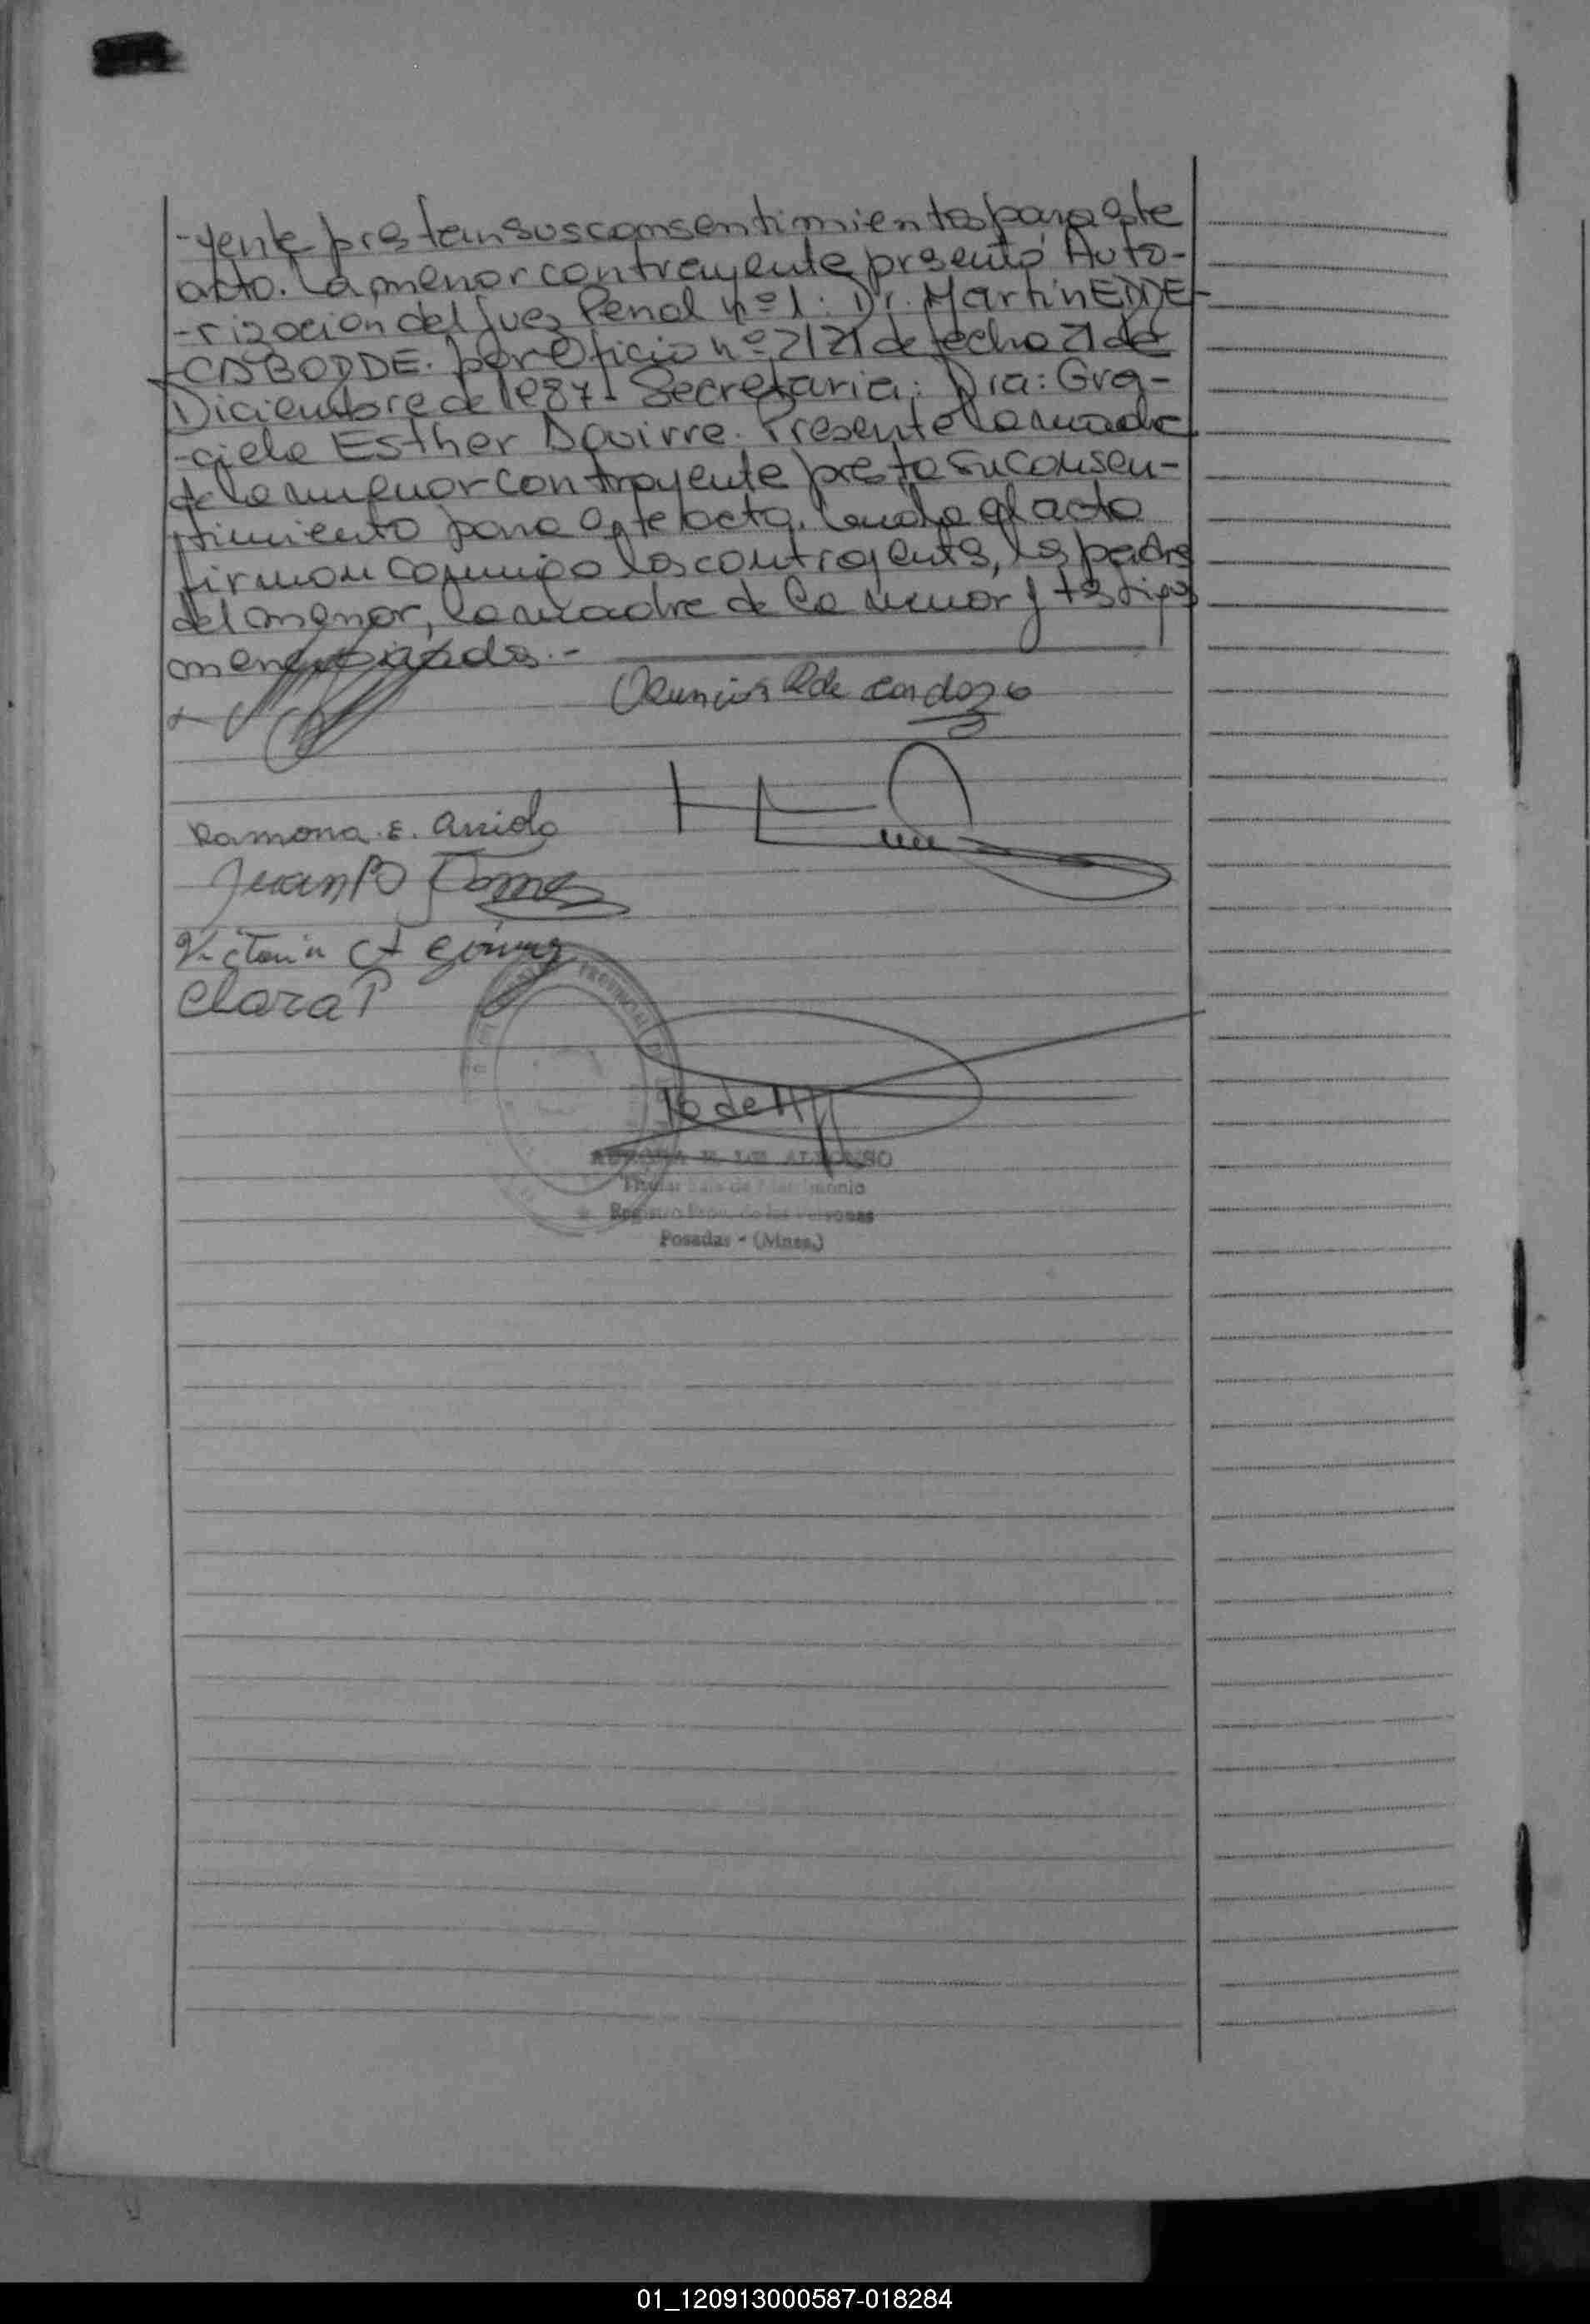 -yente prestan sus consentimientos para este
acto. La menor contrayente presentó Auto-
-rización del Juez Penal nº 1: Dr. Martín EDDE
por Oficio nº 2121 de fecha 21 de
Diciembre de 1987- Secretaria: Dra: Gra-
-ciela Esther Aguirre. Presente la madre
de la menor contrayente presta su consen-
timiento para este acto. Leída el acta
firman conmigo los contrayentes, los padres
del menor, la madre de la menor y testigos
mencionados.-
de Cardozo
Ramona. E.
Juan B Gomez
Victoria Gómez
Clara P
DE ALFONSO
Titular Sala de Matrimonio
Registro Prov. de las Personas
Posadas - (Mnes.)
01_120913000587-018284